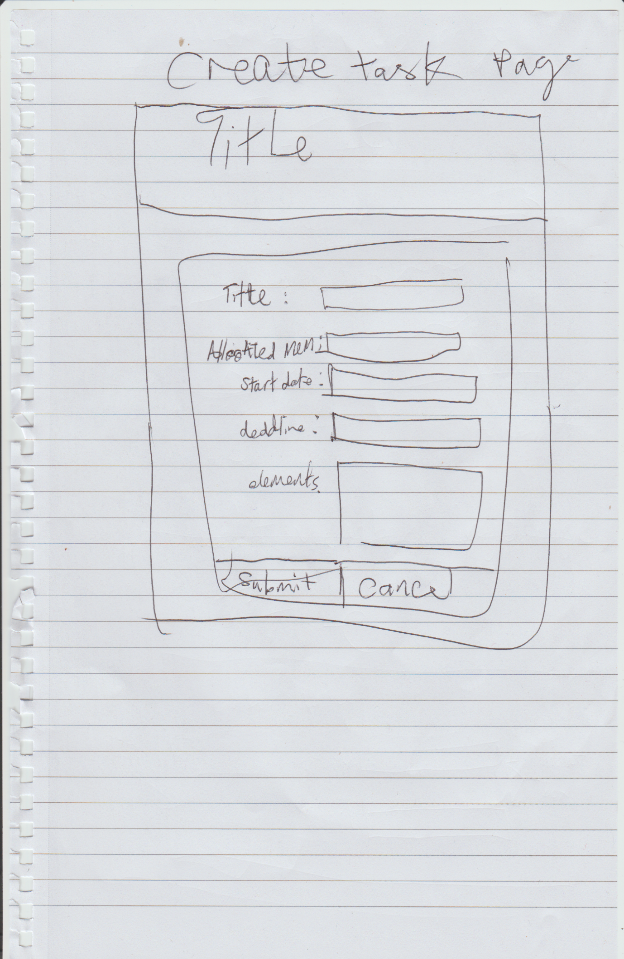 Create task page
Title
Title :
Allocated mem:
start date :
deadline :
elements
Submit Cancel